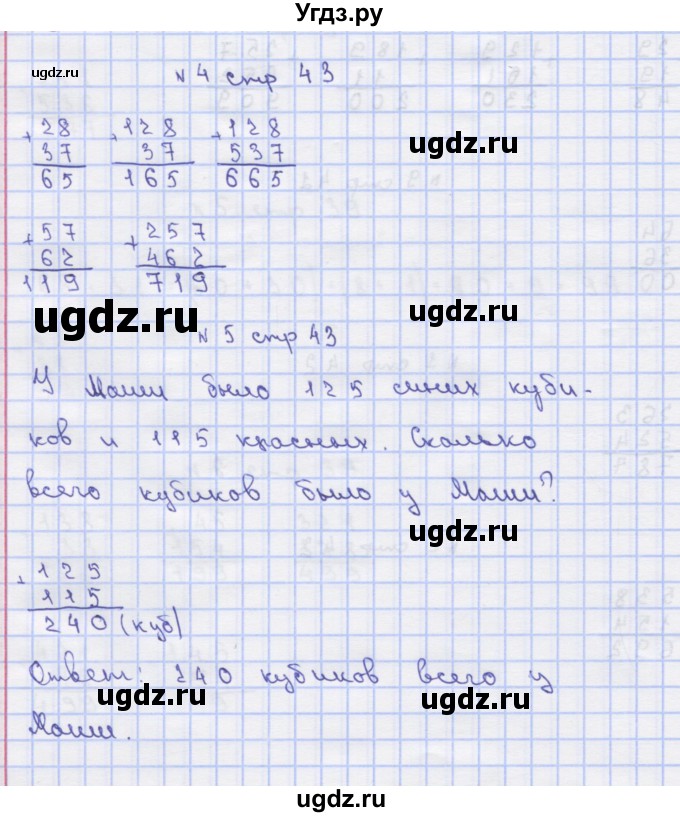 Угдз.ру
ugdz.ru
N 4 стр 43
+28 +128 +128
37 37 537
65 165 665
ugdz.ru
+57 +257
62 462
119 719
ugdz.ru
ugdz.ru
N 5 стр 43
У Маши было 125 синих куби-
ков и 115 красных. Сколько
всего кубиков было у Маши?
ugdz.ru
+125
115
240 (куб)
ugdz.ru
Ответ: 240 кубиков всего у
ugdz.ru
ugdz.ru
Маши.
ugdz.ru